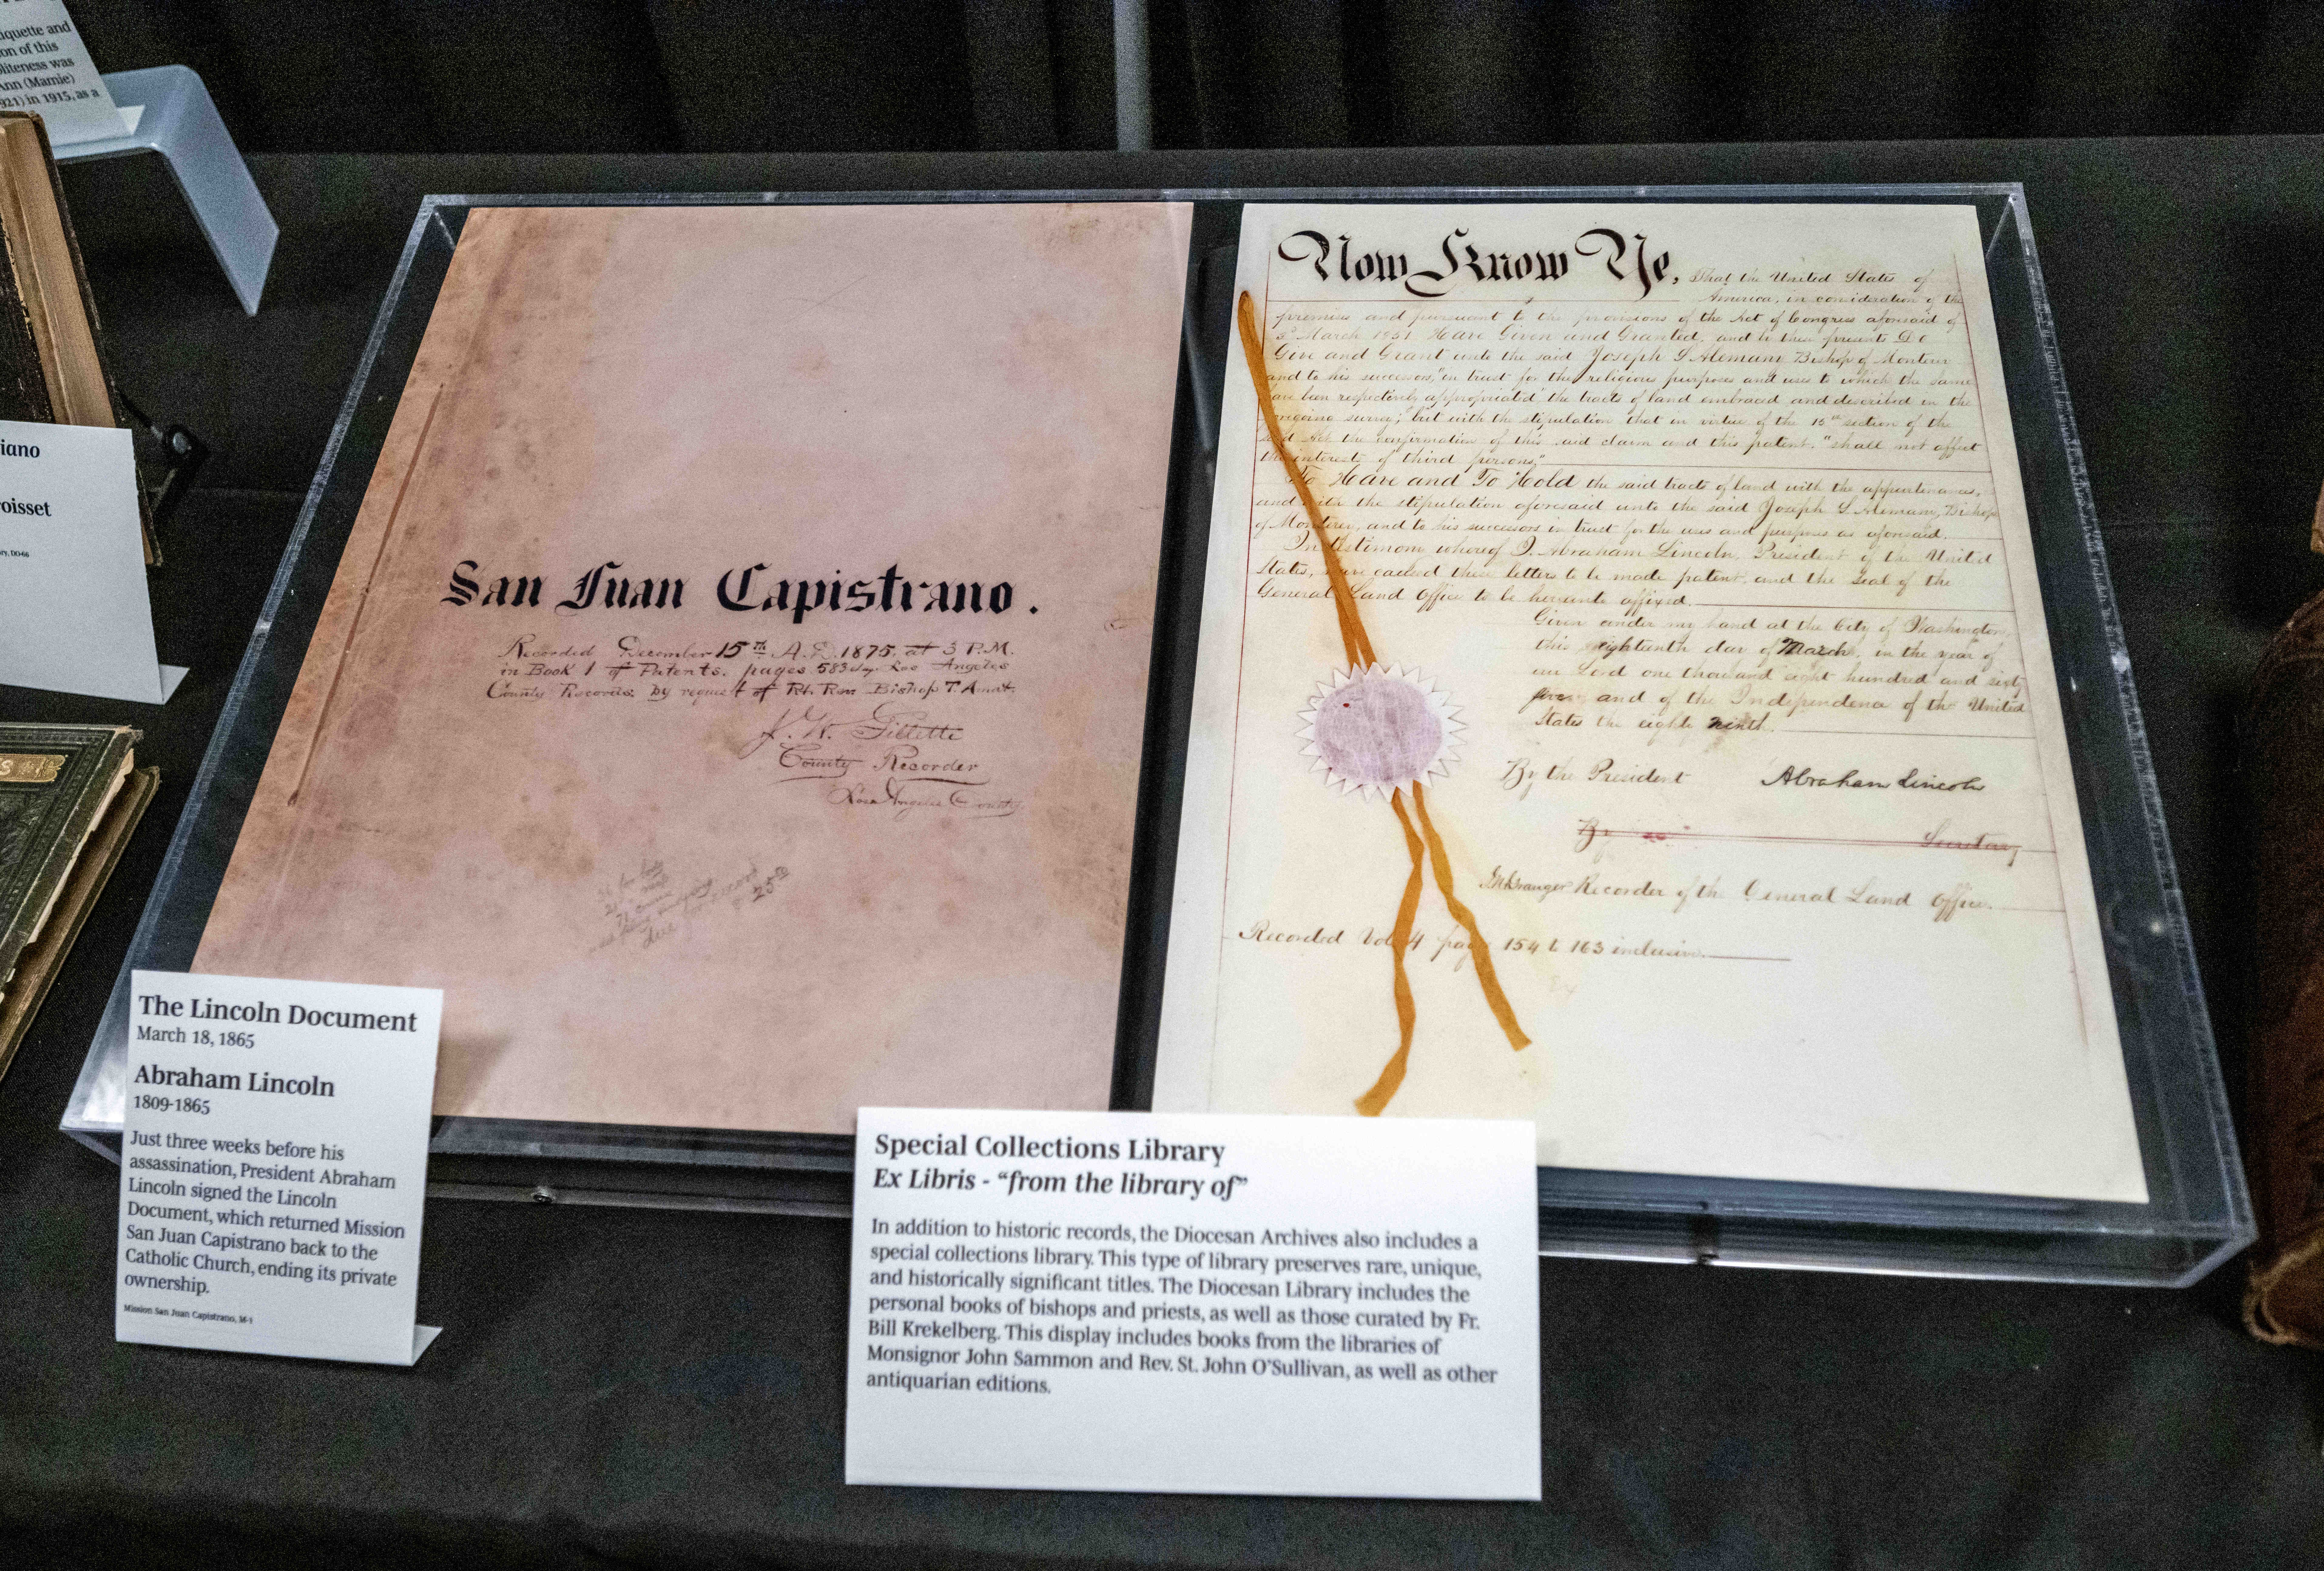 iquette and
on of this
liteness was
Ann (Mamie)
921) in 1915, as a
iano
oisset
San Juan Capistrano.
Recorded December 15th A.D. 1875. at 3 P.M.
in Book 1 of Patents. pages 583 Los Angeles
County Records. by request of Rt. Rev Bishop T Amat.
J. W. Gillette
County Recorder
Los Angeles County
due
record
25
Now Know Ye, That the United States of
America, in consideration of the
premises and pursuant to the provisions of the Act of Congress aforesaid of
3d March 1851 Have Given and Granted, and by these presents Do
Give and Grant unto the said Joseph S Alemany Bishop of Monterey
and to his successors, "in trust for the religious purposes and uses to which the same
have been respectively appropriated" the tracts of land embraced and described in the
foregoing survey; but with the stipulation that in virtue of the 15th section of the
said Act the confirmation of this said claim and this patent. "shall not affect
the interests of third persons."
To Have and To Hold the said tracts of land with the appurtenances,
and with the stipulation aforesaid unto the said Joseph S Alemany, Bishop
of Monterey, and to his successors in trust for the uses and purposes as aforesaid.
In testimony whereof I, Abraham Lincoln, President of the United
States, have caused these letters to be made patent, and the Seal of the
General Land Office to be hereunto affixed.
Given under my hand at the City of Washington,
this eighteenth day of March, in the year of
our Lord one thousand eight hundred and sixty
five and of the Independence of the United
States the eighty ninth.
By the President Abraham Lincoln
By Secretary
Granger Recorder of the General Land Office.
Recorded Vol 4 page 154 to 163 inclusive.
The Lincoln Document
March 18, 1865
Abraham Lincoln
1809-1865
Just three weeks before his
assassination, President Abraham
Lincoln signed the Lincoln
Document, which returned Mission
San Juan Capistrano back to the
Catholic Church, ending its private
ownership.
Mission San Juan Capistrano, M-1
Special Collections Library
Ex Libris - “from the library of”
In addition to historic records, the Diocesan Archives also includes a
special collections library. This type of library preserves rare, unique,
and historically significant titles. The Diocesan Library includes the
personal books of bishops and priests, as well as those curated by Fr.
Bill Krekelberg. This display includes books from the libraries of
Monsignor John Sammon and Rev. St. John O'Sullivan, as well as other
antiquarian editions.